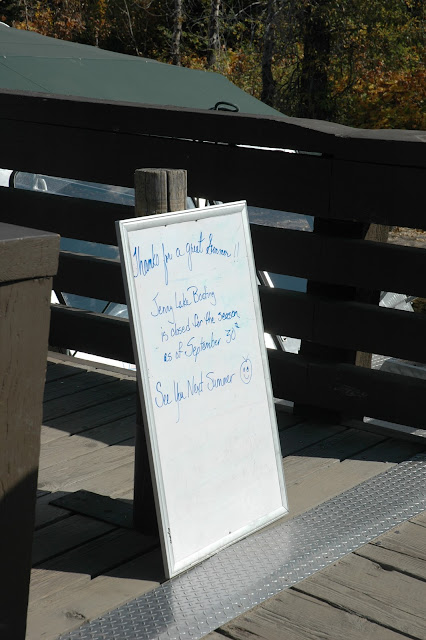 Thanks for a great Season!!
Jenny Lake Boating
is closed for the season
as of September 30th
See You Next Summer